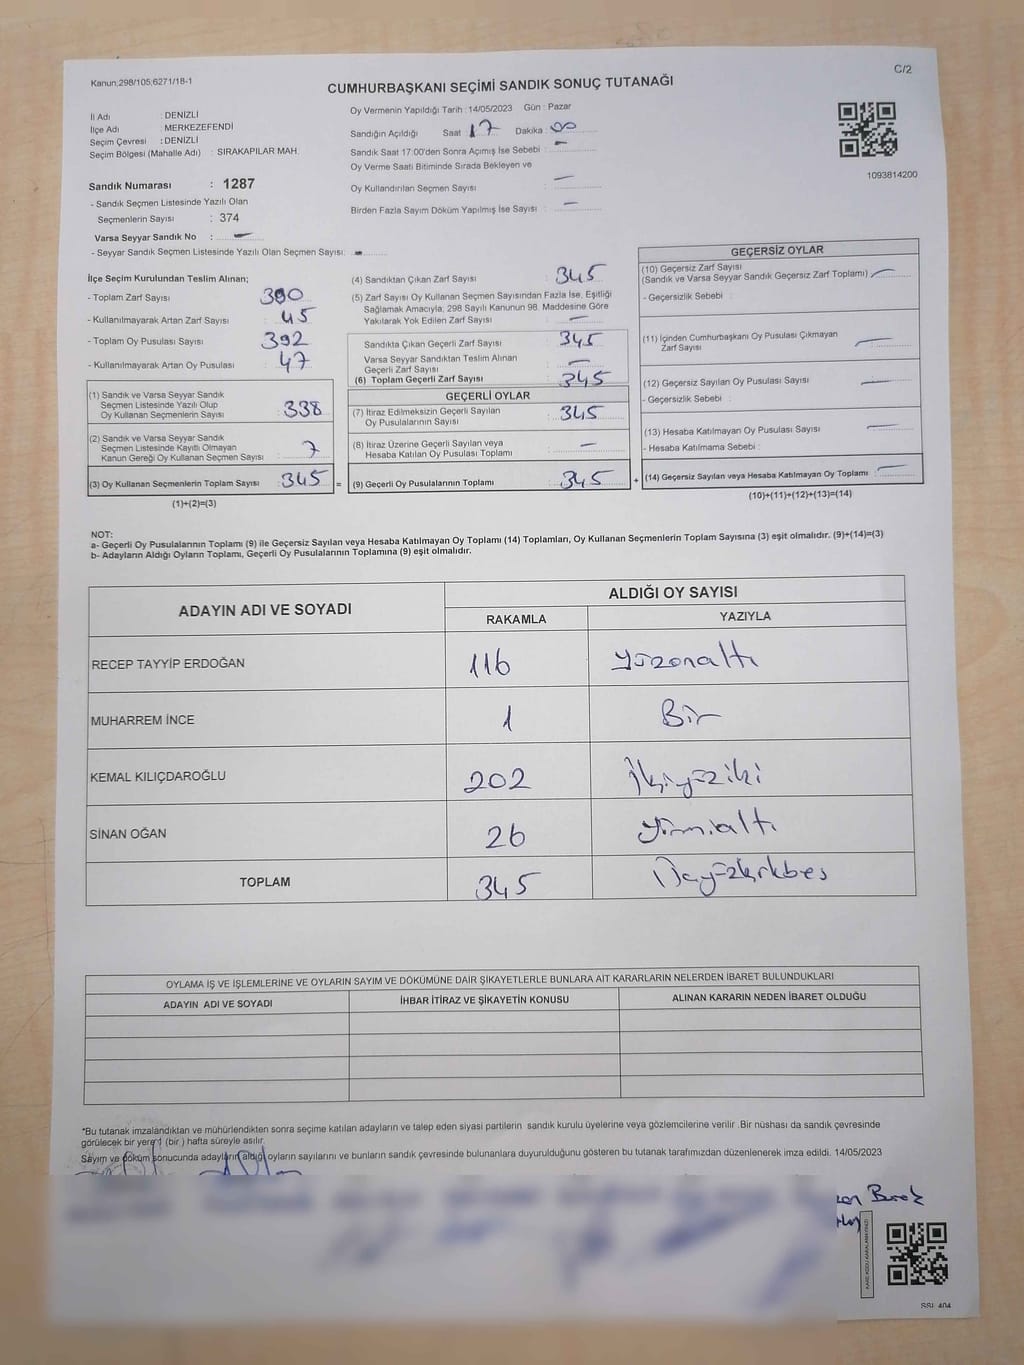 Kanun:298/105;6271/18-1
C/2
CUMHURBAŞKANI SEÇİMİ SANDIK SONUÇ TUTANAĞI
İl Adı : DENİZLİ
İlçe Adı : MERKEZEFENDİ
Seçim Çevresi : DENİZLİ
Seçim Bölgesi (Mahalle Adı) : SIRAKAPILAR MAH.
Sandık Numarası : 1287
- Sandık Seçmen Listesinde Yazılı Olan
Seçmenlerin Sayısı : 374
Varsa Seyyar Sandık No : —
- Seyyar Sandık Seçmen Listesinde Yazılı Olan Seçmen Sayısı: -
Oy Vermenin Yapıldığı Tarih : 14/05/2023 Gün : Pazar
Sandığın Açıldığı Saat 17 Dakika : 00
Sandık Saat 17:00'den Sonra Açımış İse Sebebi : —
Oy Verme Saati Bitiminde Sırada Bekleyen ve
Oy Kullandırılan Seçmen Sayısı : —
Birden Fazla Sayım Döküm Yapılmış İse Sayısı : —
1093814200
İlçe Seçim Kurulundan Teslim Alınan;
- Toplam Zarf Sayısı : 390
- Kullanılmayarak Artan Zarf Sayısı : 45
- Toplam Oy Pusulası Sayısı : 392
- Kullanılmayarak Artan Oy Pusulası : 47
(1) Sandık ve Varsa Seyyar Sandık
Seçmen Listesinde Yazılı Olup
Oy Kullanan Seçmenlerin Sayısı : 338
(2) Sandık ve Varsa Seyyar Sandık
Seçmen Listesinde Kayıtlı Olmayan
Kanun Gereği Oy Kullanan Seçmen Sayısı : 7
(3) Oy Kullanan Seçmenlerin Toplam Sayısı : 345 =
(1)+(2)=(3)
(4) Sandıktan Çıkan Zarf Sayısı : 345
(5) Zarf Sayısı Oy Kullanan Seçmen Sayısından Fazla İse, Eşitliği
Sağlamak Amacıyla, 298 Sayılı Kanunun 98. Maddesine Göre
Yakılarak Yok Edilen Zarf Sayısı : —
Sandıkta Çıkan Geçerli Zarf Sayısı : 345
Varsa Seyyar Sandıktan Teslim Alınan
Geçerli Zarf Sayısı : —
(6) Toplam Geçerli Zarf Sayısı : 345
GEÇERLİ OYLAR
(7) İtiraz Edilmeksizin Geçerli Sayılan
Oy Pusulasının Sayısı : 345
(8) İtiraz Üzerine Geçerli Sayılan veya
Hesaba Katılan Oy Pusulası Toplamı : —
(9) Geçerli Oy Pusulalarının Toplamı : 345 +
GEÇERSİZ OYLAR
(10) Geçersiz Zarf Sayısı
(Sandık ve Varsa Seyyar Sandık Geçersiz Zarf Toplamı) : —
- Geçersizlik Sebebi :
(11) İçinden Cumhurbaşkanı Oy Pusulası Çıkmayan
Zarf Sayısı : —
(12) Geçersiz Sayılan Oy Pusulası Sayısı : —
- Geçersizlik Sebebi :
(13) Hesaba Katılmayan Oy Pusulası Sayısı : —
- Hesaba Katılmama Sebebi :
(14) Geçersiz Sayılan veya Hesaba Katılmayan Oy Toplamı : —
(10)+(11)+(12)+(13)=(14)
NOT:
a- Geçerli Oy Pusulalarının Toplamı (9) ile Geçersiz Sayılan veya Hesaba Katılmayan Oy Toplamı (14) Toplamları, Oy Kullanan Seçmenlerin Toplam Sayısına (3) eşit olmalıdır. (9)+(14)=(3)
b- Adayların Aldığı Oyların Toplamı, Geçerli Oy Pusulalarının Toplamına (9) eşit olmalıdır.
ADAYIN ADI VE SOYADI ALDIĞI OY SAYISI
RAKAMLA YAZIYLA
RECEP TAYYİP ERDOĞAN 116 Yüzonaltı
MUHARREM İNCE 1 Bir
KEMAL KILIÇDAROĞLU 202 İkiyüziki
SİNAN OĞAN 26 Yirmialtı
TOPLAM 345 Üçyüzkırkbeş
OYLAMA İŞ VE İŞLEMLERİNE VE OYLARIN SAYIM VE DÖKÜMÜNE DAİR ŞİKAYETLERLE BUNLARA AİT KARARLARIN NELERDEN İBARET BULUNDUKLARI
ADAYIN ADI VE SOYADI İHBAR İTİRAZ VE ŞİKAYETİN KONUSU ALINAN KARARIN NEDEN İBARET OLDUĞU
*Bu tutanak imzalandıktan ve mühürlendikten sonra seçime katılan adayların ve talep eden siyasi partilerin sandık kurulu üyelerine veya gözlemcilerine verilir .Bir nüshası da sandık çevresinde
görülecek bir yere 1 (bir ) hafta süreyle asılır.
Sayım ve döküm sonucunda adayların aldığı oyların sayılarını ve bunların sandık çevresinde bulunanlara duyurulduğunu gösteren bu tutanak tarafımızdan düzenlenerek imza edildi. 14/05/2023
Burak